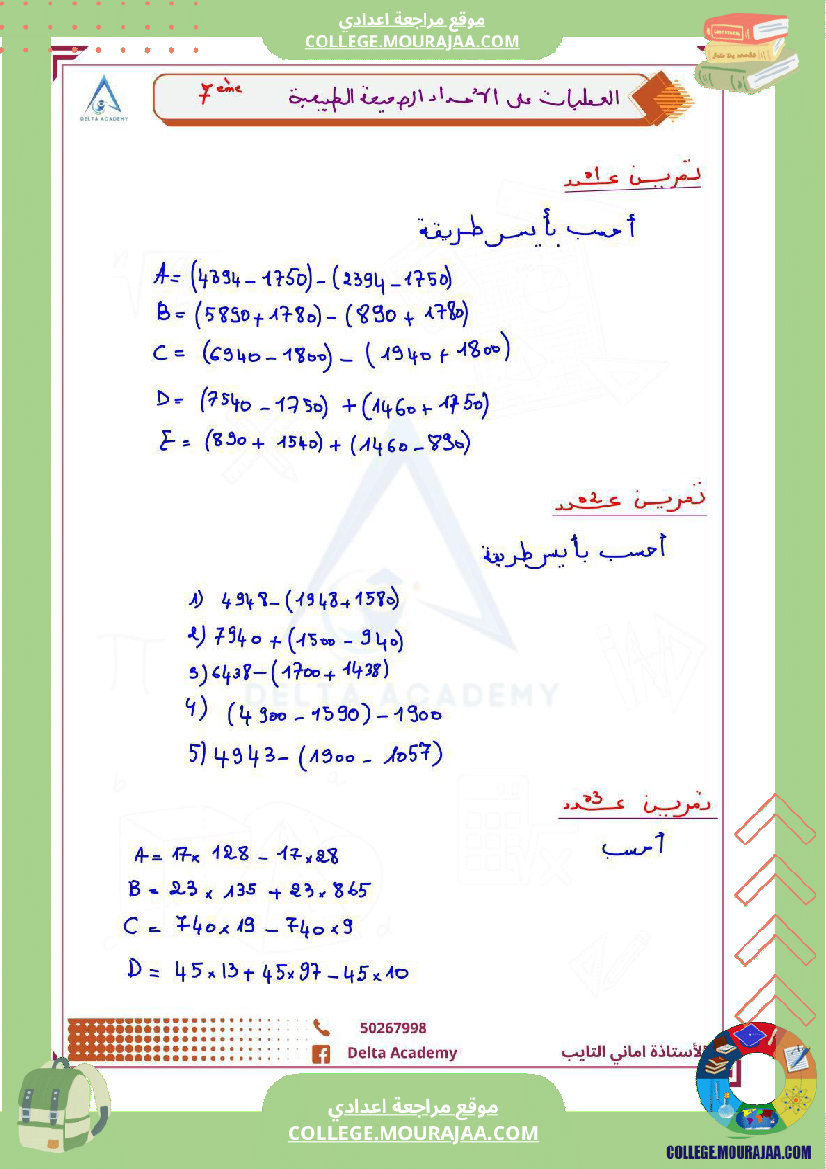 موقع مراجعة اعدادي
COLLEGE.MOURAJAA.COM
DELTA ACADEMY
العمليات على الأعداد الصحيحة الطبيعية 7ème
تمرين عـ01ـدد
أحسب بأيسر طريقة
A = (4394 - 1750) - (2394 - 1750)
B = (5890 + 1780) - (890 + 1780)
C = (6940 - 1800) - (1940 + 1800)
D = (7540 - 1750) + (1460 + 1750)
E = (890 + 1540) + (1460 - 890)
تمرين عـ02ـدد
أحسب بأيسر طريقة
1) 4948 - (1948 + 1580)
2) 7940 + (1500 - 940)
3) 6438 - (1700 + 1438)
DELTA ACADEMY
4) (4900 - 1590) - 1900
5) 4943 - (1900 - 1057)
تمرين عـ03ـدد
أحسب
A = 17 x 128 - 17 x 28
B = 23 x 135 + 23 x 865
C = 740 x 19 - 740 x 9
D = 45 x 13 + 45 x 97 - 45 x 10
50267998
Delta Academy
الأستاذة اماني التايب
موقع مراجعة اعدادي
COLLEGE.MOURAJAA.COM
COLLEGE.MOURAJAA.COM